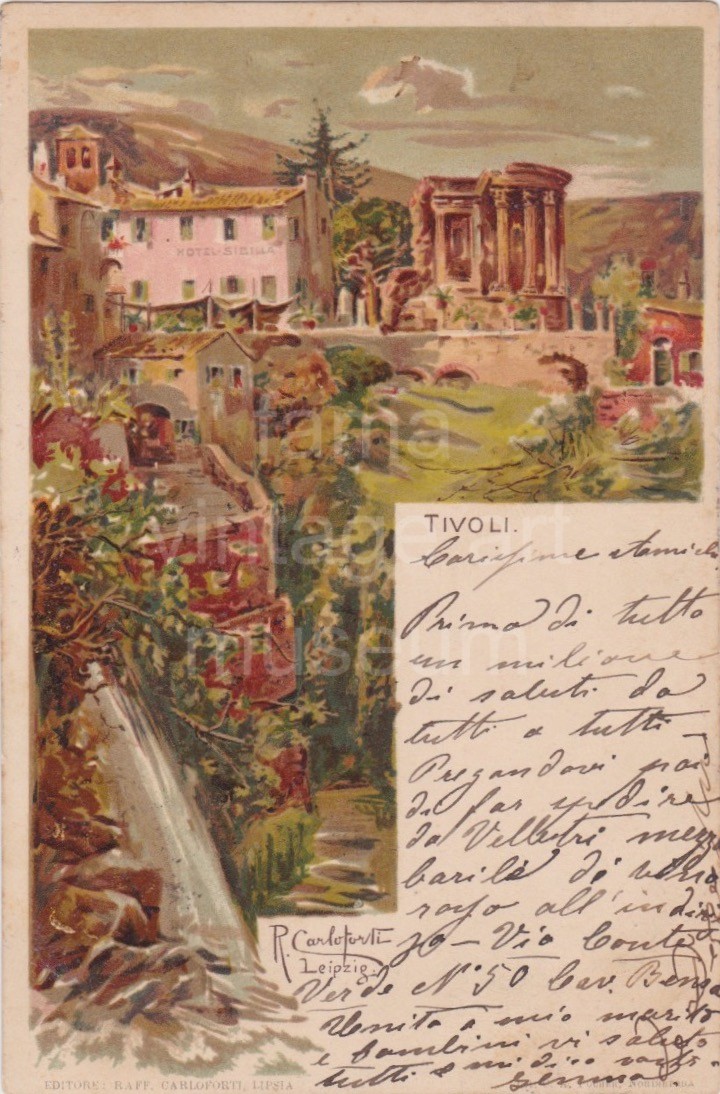 HOTEL·SIBILLA
tama
vintage art
museum
TIVOLI.
Carissime
Prima di tutto
un milione
di saluti da
tutti a tutti
Pregandovi poi
di far spedire
da Velletri mezzo
barile di vino
rosso all'indiriz
zo – Via Conte
Verde N° 50 Cav.
Unita a mio marito
e bambini vi saluto
tutti e mi dico
Gemma
R. Carloforti
Leipzig.
EDITORE: RAFF. CARLOFORTI, LIPSIA
NORIMBERGA